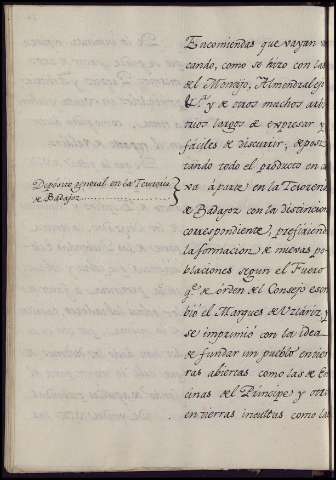 Encomiendas que vayan va
cando, como se hizo con las
del Montijo, Almendralejo
y de otros muchos arbi
trios largos de expresar y
fáciles de discurrir, deposi
tando todo el producto en ca
xa aparte en la Tesoreria
de Badajoz con la distincion
correspondiente, prefiriendo
la formacion de nuevas po
blaciones segun el Fuero
qe. de órden del Consejo escri
bió el Marques de Uztáriz y
se imprimió con la idea
de fundar un pueblo en tier
ras abiertas como las de En
cinas del Príncipe y otro
en tierras incultas como las
Depósito general en la Tesoreria
de Badajoz